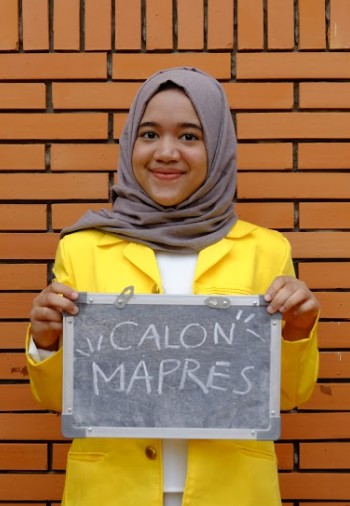 CALON
MAPRES